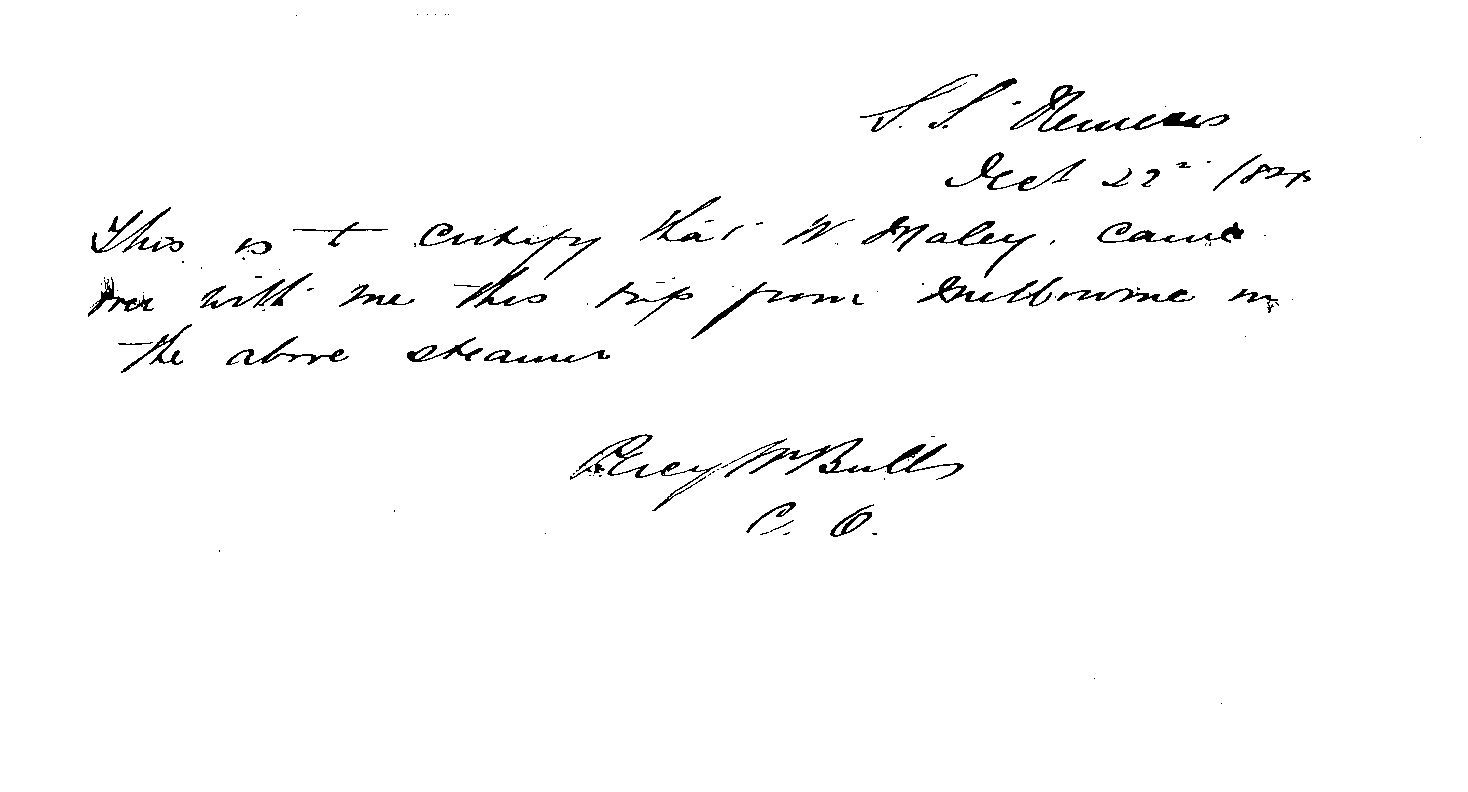 S. S. Nemesis
Oct 22nd
This is to certify that W. Maley. came
over with me this trip from Melbourne in
the above steamer
Percy W Bulls
C. O.